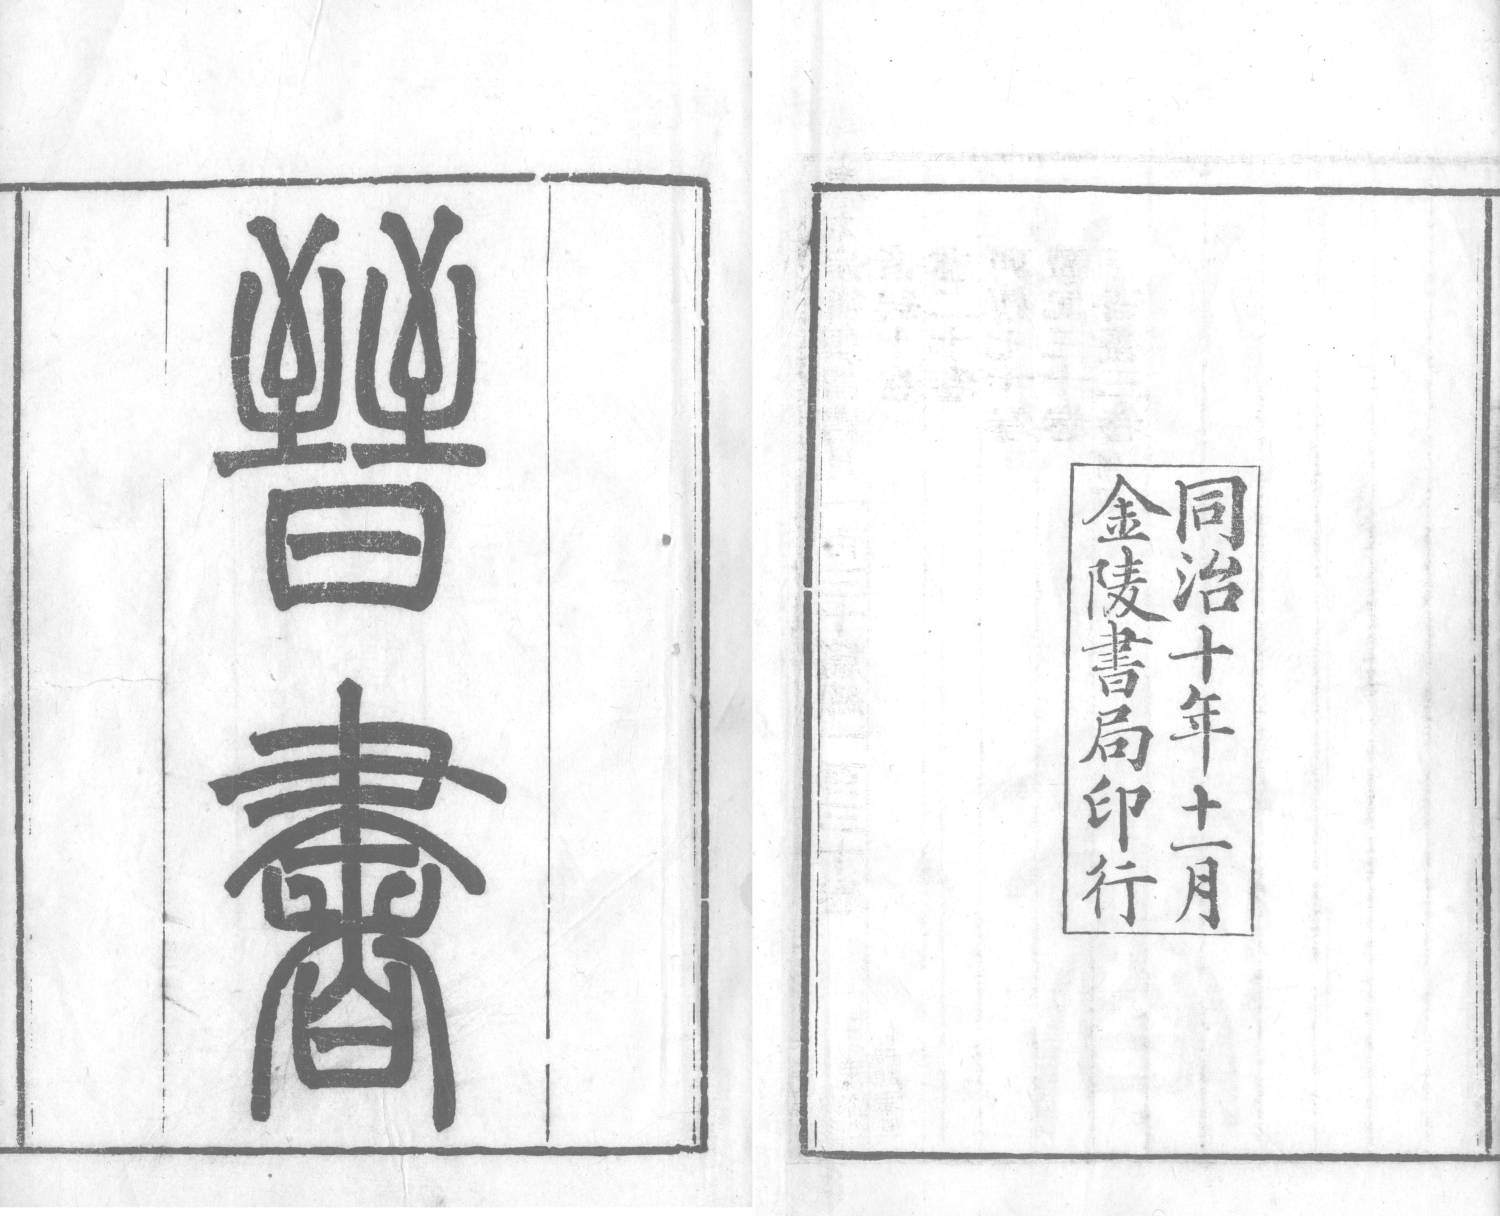 晉書
同治十年十一月
金陵書局印行